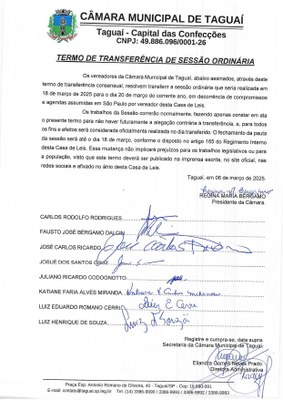 CÂMARA MUNICIPAL DE TAGUAÍ
Taguaí - Capital das Confecções
CNPJ: 49.886.096/0001-26
TERMO DE TRANSFERÊNCIA DE SESSÃO ORDINÁRIA
Os vereadores da Câmara Municipal de Taguaí, abaixo assinados, através deste
termo de transferência consensual, resolvem transferir a sessão ordinária que seria realizada em
18 de março de 2025 para o dia 20 de março do corrente ano, em decorrência de compromissos
e agendas assumidas em São Paulo por vereador desta Casa de Leis.
Os trabalhos da Sessão correrão normalmente, fazendo apenas constar em ata
o presente termo para não haver futuramente a alegação contrária à transferência, e, para todos
os fins e efeitos será considerada oficialmente realizada no dia transferido. O fechamento da pauta
da sessão será até o dia 18 de março, conforme o disposto no artigo 165 do Regimento Interno
desta Casa de Leis. Essa mudança não implicará prejuízos para os trabalhos legislativos ou para
a população, visto que este termo deverá ser publicado na imprensa escrita, no site oficial, nas
redes sociais e afixado no átrio desta Casa de Leis.
Taguaí, em 06 de março de 2025.
REGINA MARIA BERGAMO
Presidente da Câmara
CARLOS RODOLFO RODRIGUES
FAUSTO JOSÉ BERGAMO DALCIN
JOSÉ CARLOS RICARDO José Carlos Ricardo
JOSUÉ DOS SANTOS CRUZ
JULIANO RICARDO CODOGNOTTO
KATIANE FARIA ALVES MIRANDA
LUIZ EDUARDO ROMANO CERRI Luiz E Cerri
LUIZ HENRIQUE DE SOUZA Luiz H Souza
Registre e cumpra-se, data supra
Secretaria da Câmara Municipal de Taguaí
Eliandra Gomes Neves Prado
Diretora Administrativa